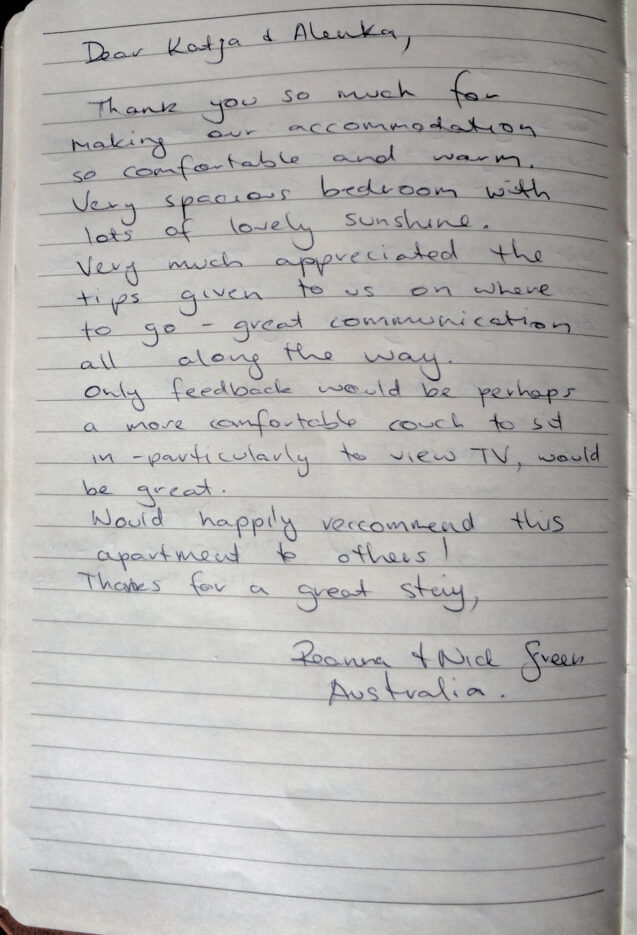 Dear Katja & Alenka,
Thank you so much for
making our accommodation
so comfortable and warm.
Very spacious bedroom with
lots of lovely sunshine.
Very much appreciated the
tips given to us on where
to go - great communication
all along the way.
Only feedback would be perhaps
a more comfortable couch to sit
in - particularly to view TV, would
be great.
Would happily reccommend this
apartment to others!
Thanks for a great stay,
Reanna & Nick Green
Australia.